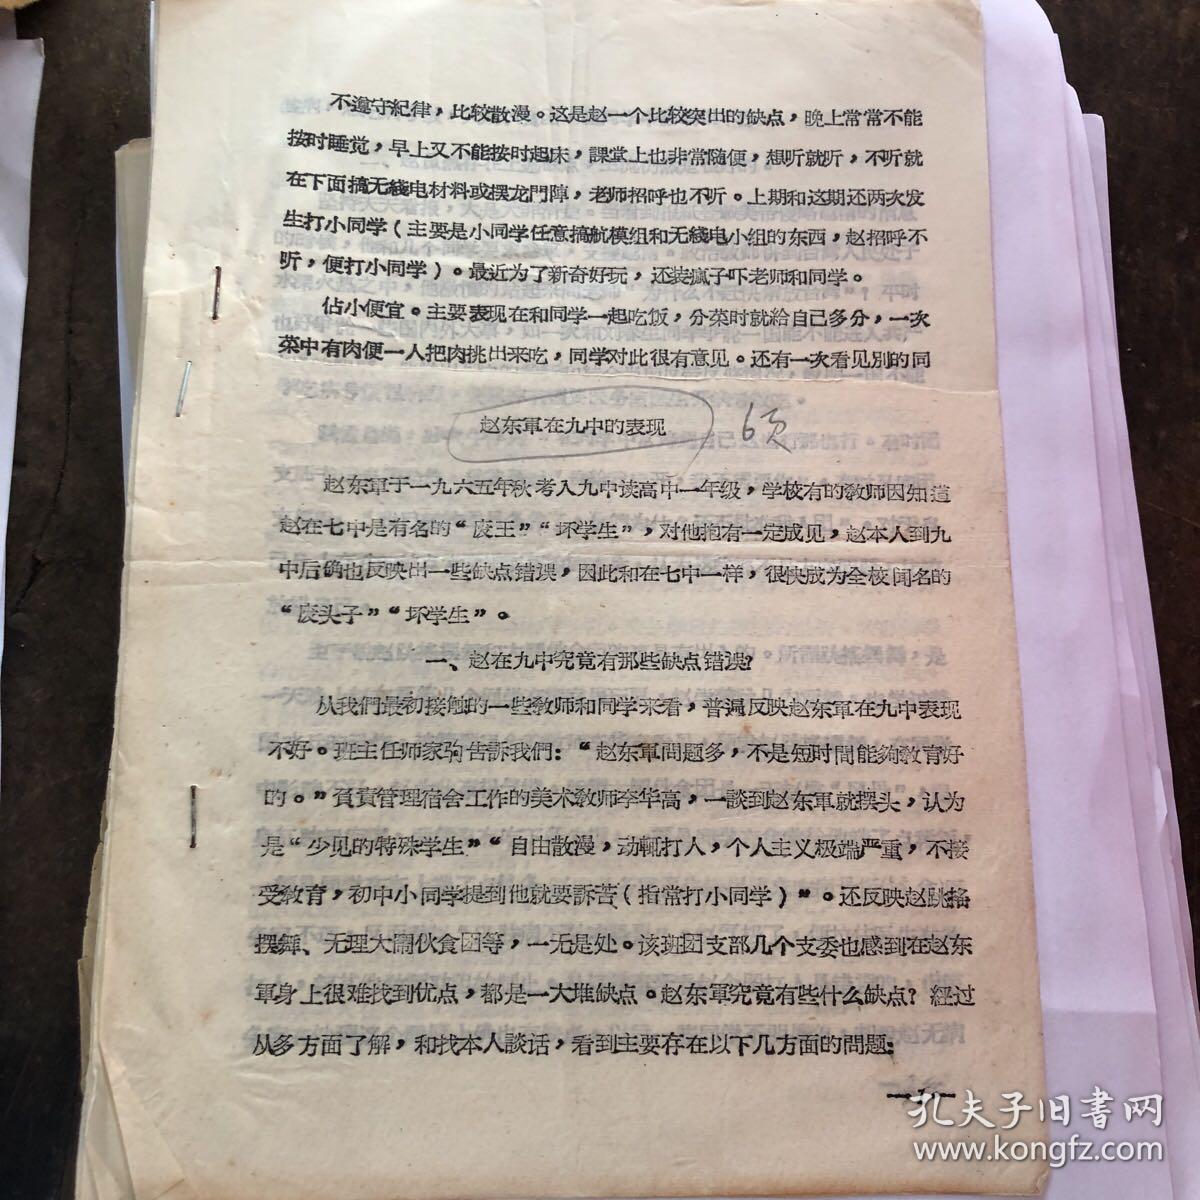 不遵守紀律，比较散漫。这是赵一个比较突出的缺点，晚上常常不能
按时睡觉，早上又不能按时起床，課堂上也非常随便，想听就听，不听就
在下面搞无綫电材料或摆龙門陣，老师招呼也不听。上期和这期还两次发
生打小同学（主要是小同学任意搞航模組和无綫电小组的东西，赵招呼不
听，便打小同学）。最近为了新奇好玩，还装瘋子吓老师和同学。
佔小便宜。主要表现在和同学一起吃饭，分菜时就給自己多分，一次
菜中有肉便一人把肉挑出来吃，同学对此很有意见。还有一次看见別的同
赵东軍在九中的表现
6页
赵东軍于一九六五年秋考入九中读高中一年级，学校有的敎师因知道
赵在七中是有名的“废王”“坏学生”，对他抱有一定成见，赵本人到九
中后确也反映出一些缺点错误，因此和在七中一样，很快成为全校闻名的
“废头子”“坏学生”。
一、赵在九中究竟有那些缺点错误？
从我們最初接触的一些敎师和同学来看，普遍反映赵东軍在九中表现
不好。班主任师家驹告訴我們：“赵东軍問題多，不是短时間能夠敎育好
的。”負責管理宿舍工作的美术敎师李华高，一談到赵东軍就摆头，认为
是“少见的特殊学生”“自由散漫，动輒打人，个人主义极端严重，不接
受敎育，初中小同学提到他就要訴苦（指常打小同学）”。还反映赵跳搖
摆舞、无理大鬧伙食团等，一无是处。该班团支部几个支委也感到在赵东
軍身上很难找到优点，都是一大堆缺点。赵东軍究竟有些什么缺点？經过
从多方面了解，和找本人談话，看到主要存在以下几方面的問題：
孔夫子旧書网
www.kongfz.com